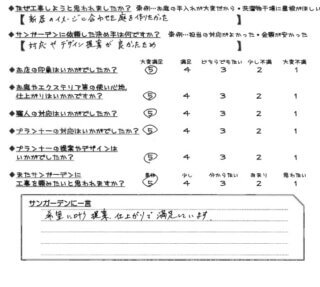 ◆なぜ工事しようと思われましたか? 事例…お庭の手入れが大変だから・洗濯物干場に屋根がほしい
【 新居のイメージに合わせた庭を作りたかった 】
◆サンガーデンに依頼した決め手は何ですか? 事例…担当の対応がよかった・金額が安かった
【 対応やデザイン提案が良かったため 】
大変満足 満足 どちらでもない 少し不満 大変不満
◆お店の印象はいかがでしたか? 5 4 3 2 1
◆お庭やエクステリア等の使い心地、
仕上がりはいかがですか? 5 4 3 2 1
◆職人の対応はいかがでしたか? 5 4 3 2 1
◆プランナーの対応はいかがでしたか? 5 4 3 2 1
◆プランナーの提案やデザインは
いかがでしたか? 5 4 3 2 1
◆またサンガーデンに 少し 分からない あまり 思わない
工事を頼みたいと思われますか? 5 4 3 2 1
サンガーデンに一言
希望に叶う提案、仕上がりで満足しています。